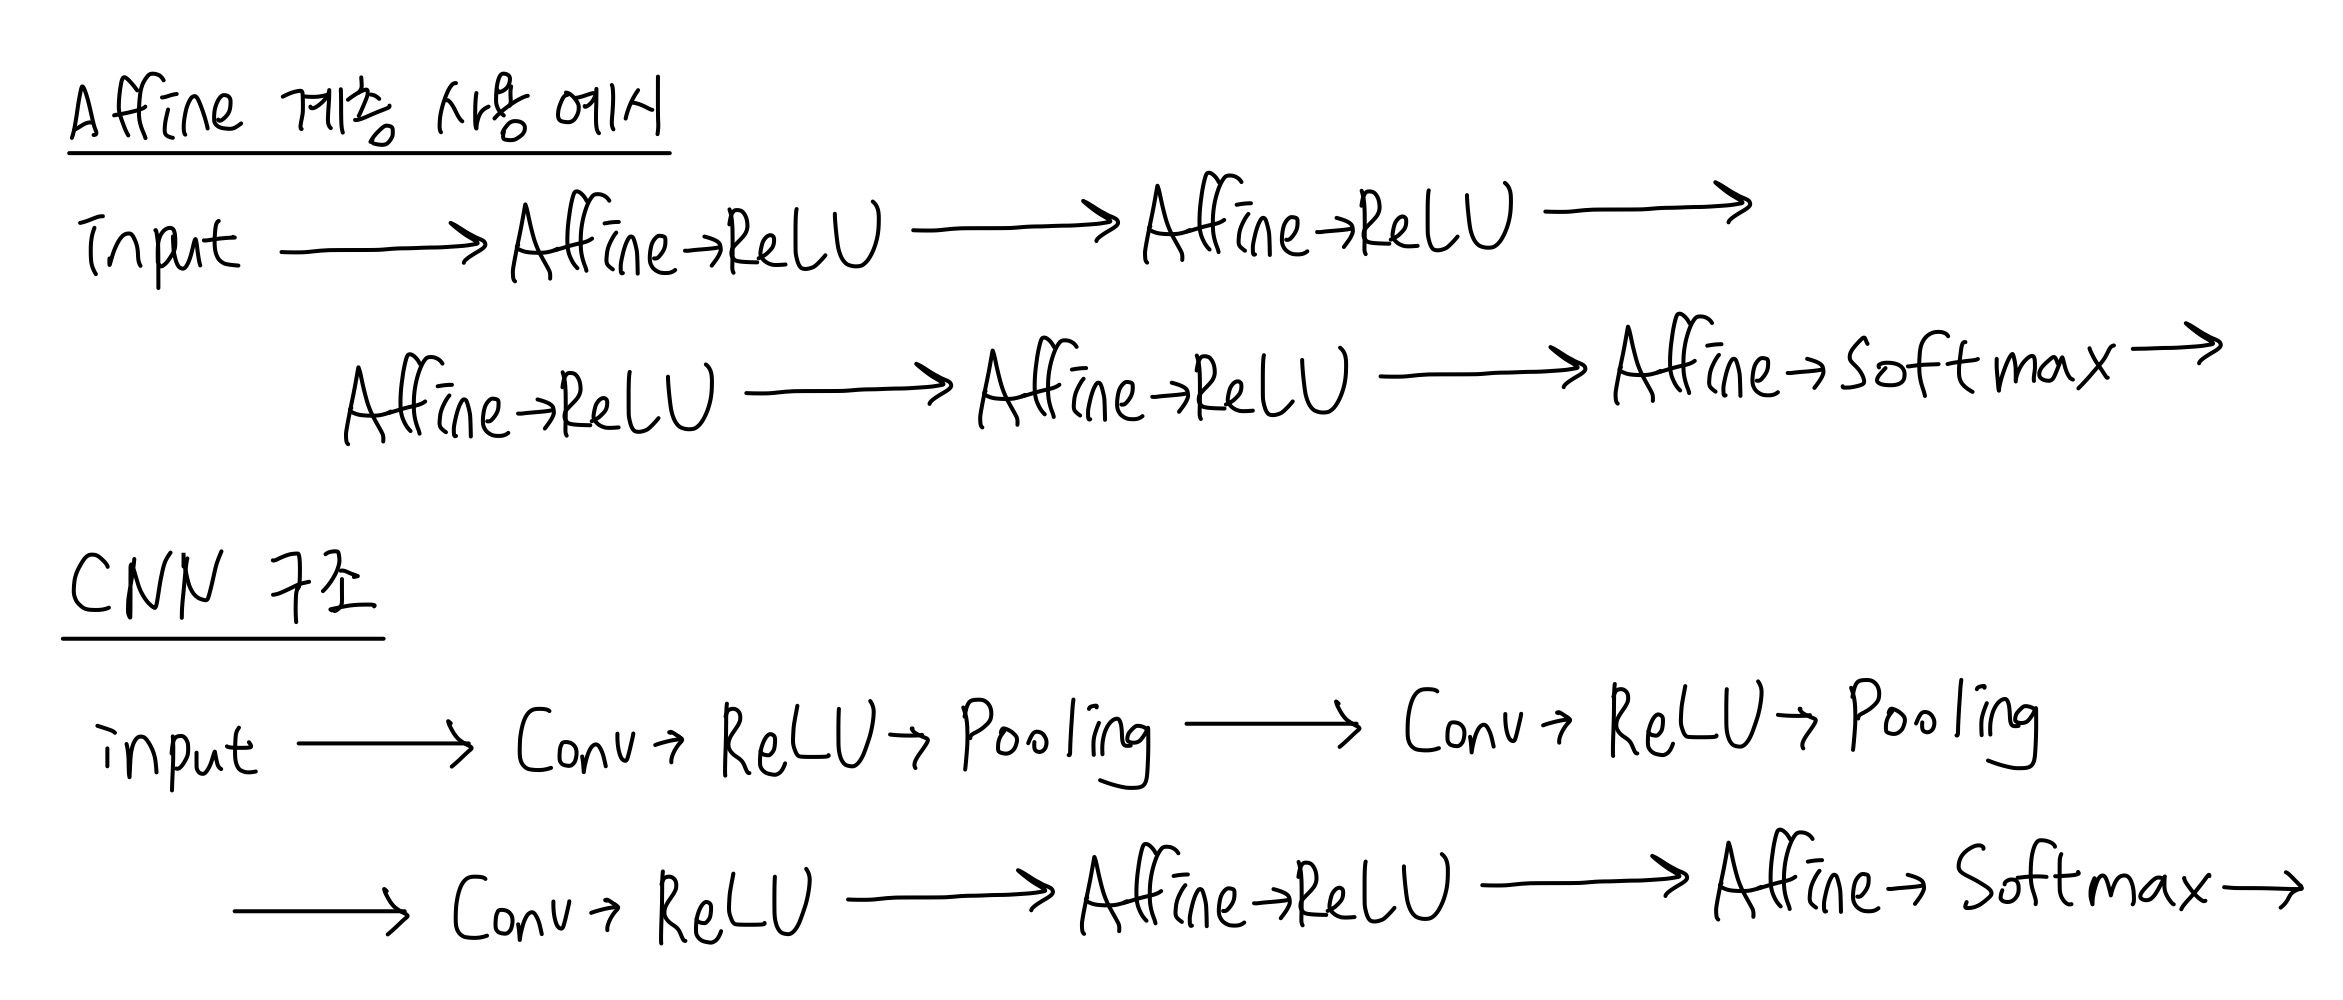 Affine 계층 사용 예시
input → Affine → ReLU → Affine → ReLU →
Affine → ReLU → Affine → ReLU → Affine → Softmax →
CNN 구조
input → Conv → ReLU → Pooling → Conv → ReLU → Pooling
→ Conv → ReLU → Affine → ReLU → Affine → Softmax →